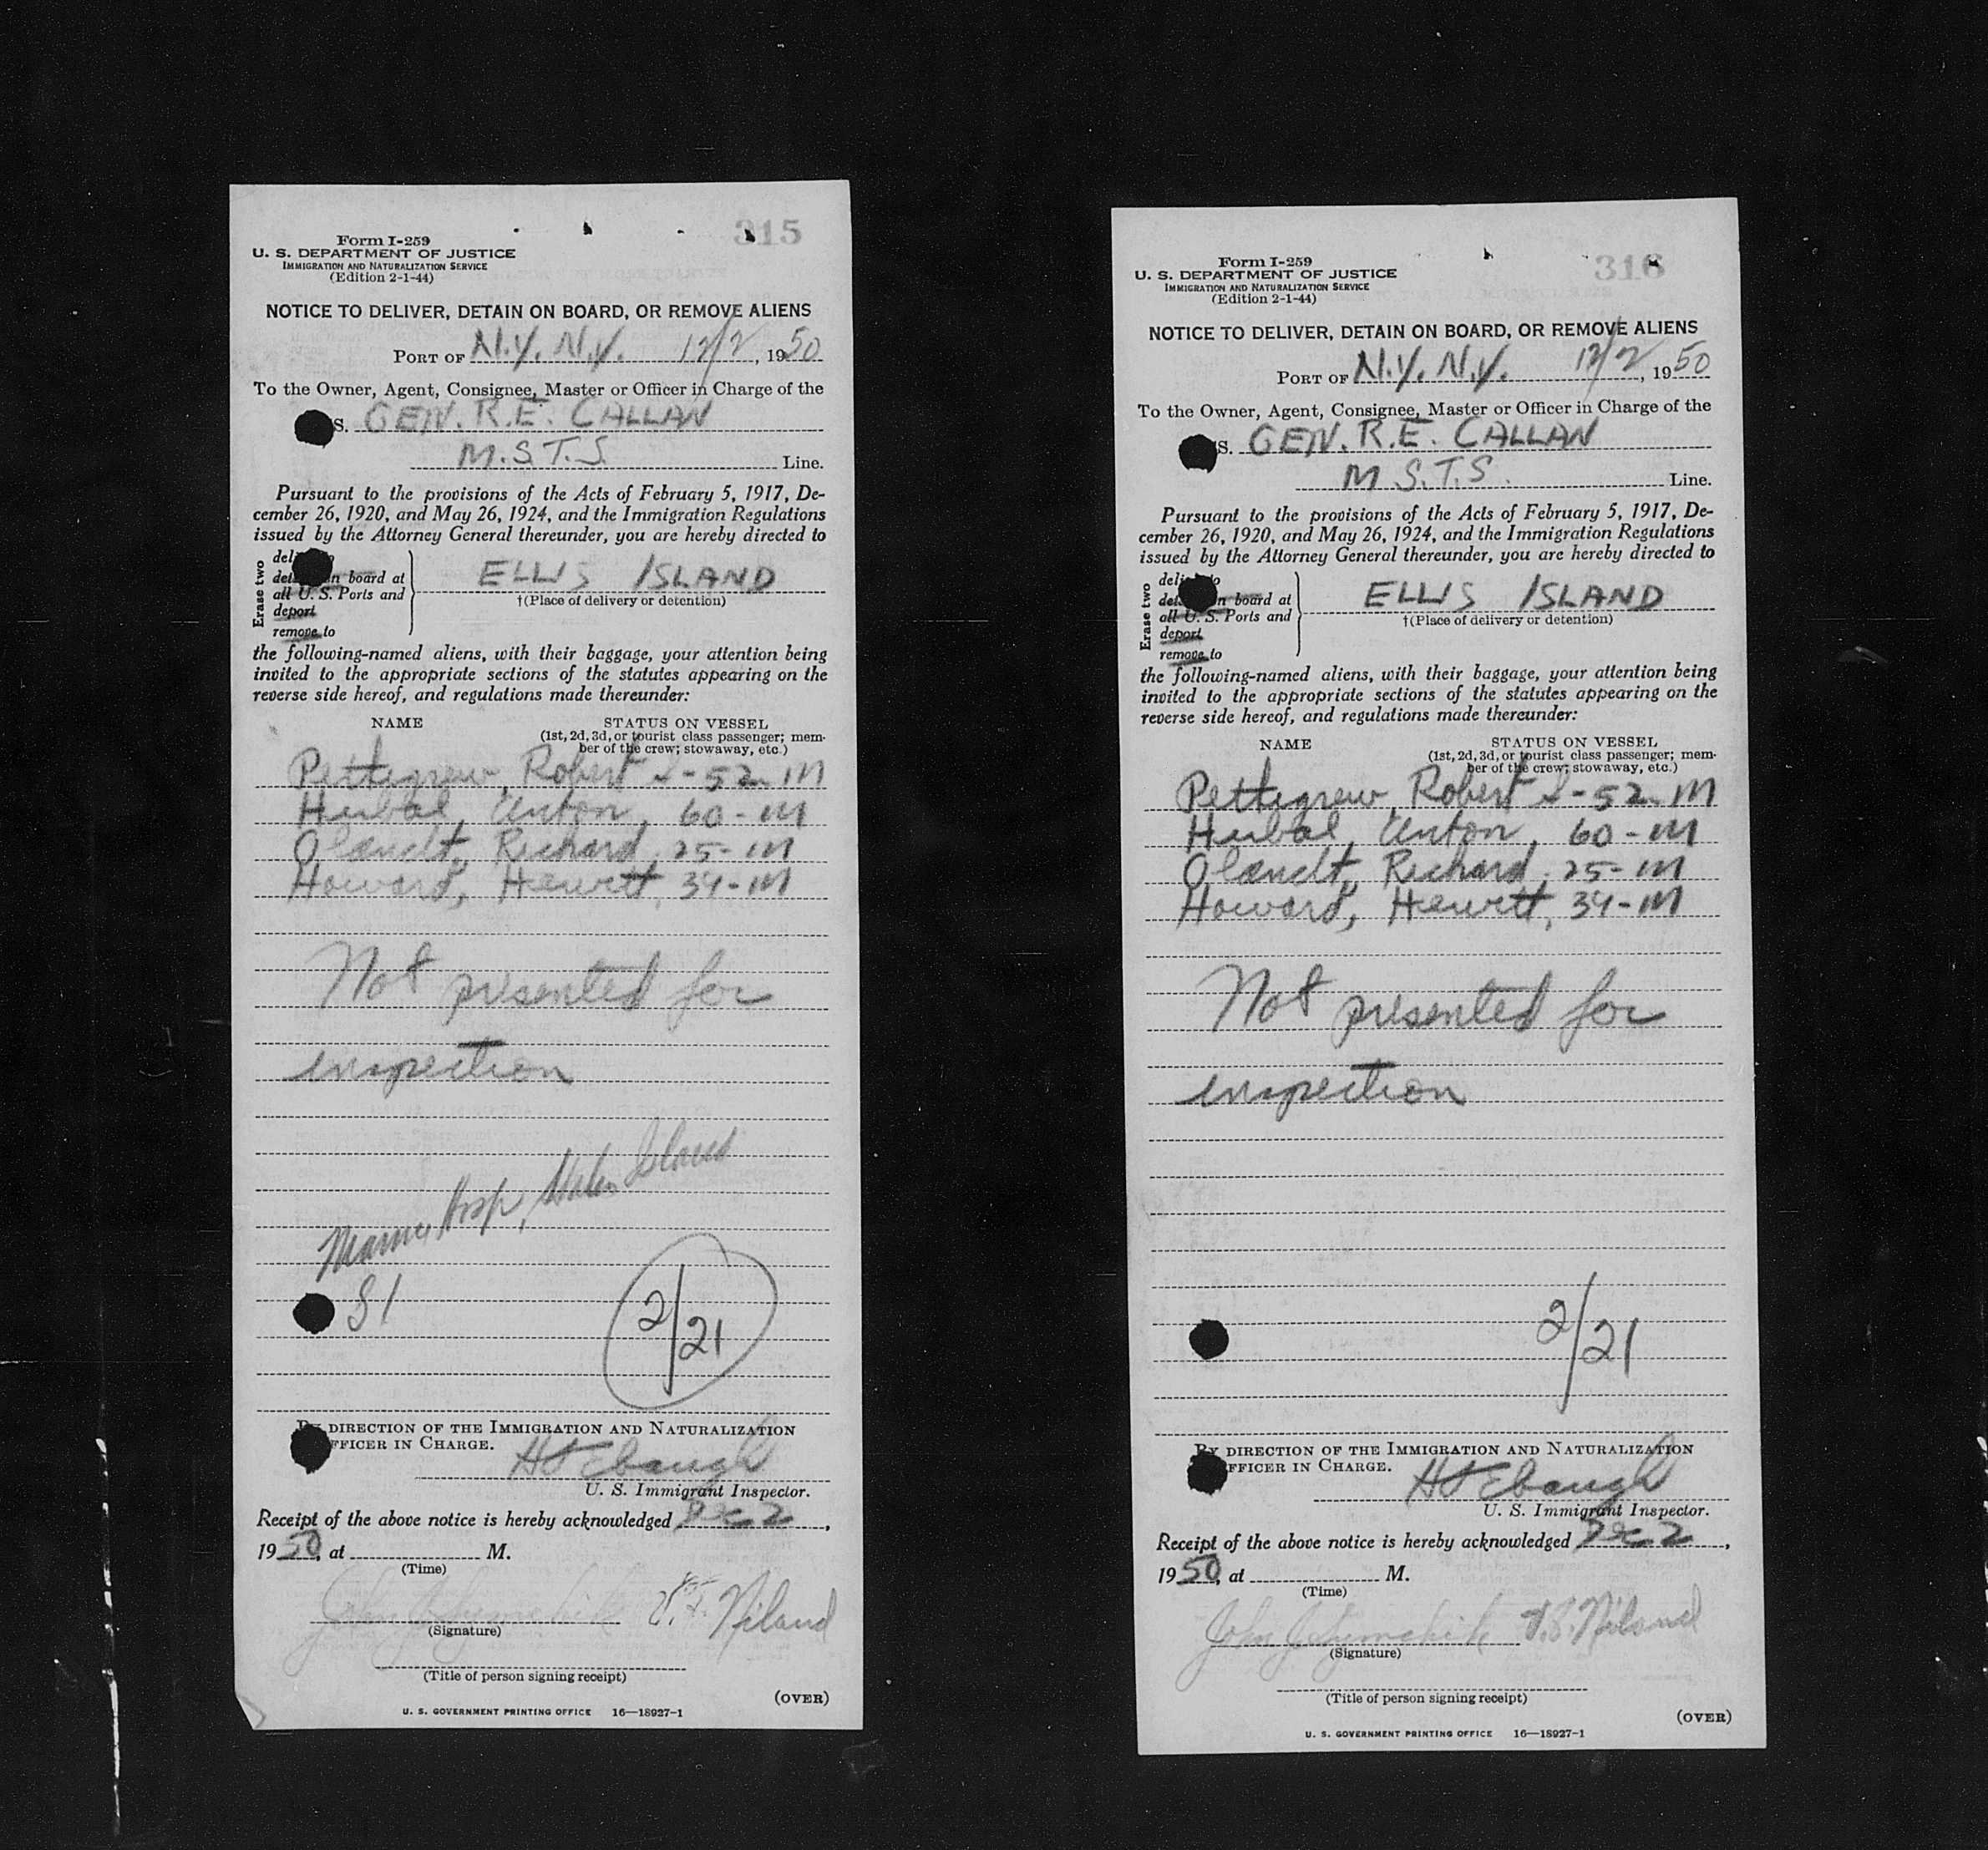 315
Form I-259
U. S. DEPARTMENT OF JUSTICE
IMMIGRATION AND NATURALIZATION SERVICE
(Edition 2-1-44)
NOTICE TO DELIVER, DETAIN ON BOARD, OR REMOVE ALIENS
PORT OF N.Y. N.Y. 12/2, 1950
To the Owner, Agent, Consignee, Master or Officer in Charge of the
S. GEN. R.E. CALLAN
M.S.T.S Line.
Pursuant to the provisions of the Acts of February 5, 1917, De-
cember 26, 1920, and May 26, 1924, and the Immigration Regulations
issued by the Attorney General thereunder, you are hereby directed to
Erase two
on board at
all U. S. Ports and
deport
remove to
ELLIS ISLAND
†(Place of delivery or detention)
the following-named aliens, with their baggage, your attention being
invited to the appropriate sections of the statutes appearing on the
reverse side hereof, and regulations made thereunder:
NAME STATUS ON VESSEL
(1st, 2d, 3d, or tourist class passenger; mem-
ber of the crew; stowaway, etc.)
Pettigrew, Robert - 52 - M
Anton, 60 - M
Olandt, Richard, 25 - M
Howard, Hewitt, 34 - M
Not presented for
inspection
Hosp, Staten Island
SI
2/21
BY DIRECTION OF THE IMMIGRATION AND NATURALIZATION
OFFICER IN CHARGE.
Ebaugh
U. S. Immigrant Inspector.
Receipt of the above notice is hereby acknowledged Dec 2,
1950, at M.
(Time)
John Niland
(Signature)
(Title of person signing receipt)
(OVER)
U. S. GOVERNMENT PRINTING OFFICE 16—18927-1
316
Form I-259
U. S. DEPARTMENT OF JUSTICE
IMMIGRATION AND NATURALIZATION SERVICE
(Edition 2-1-44)
NOTICE TO DELIVER, DETAIN ON BOARD, OR REMOVE ALIENS
PORT OF N.Y. N.Y. 12/2, 1950
To the Owner, Agent, Consignee, Master or Officer in Charge of the
S. GEN. R.E. CALLAN
M.S.T.S. Line.
Pursuant to the provisions of the Acts of February 5, 1917, De-
cember 26, 1920, and May 26, 1924, and the Immigration Regulations
issued by the Attorney General thereunder, you are hereby directed to
Erase two
on board at
all U. S. Ports and
deport
remove to
ELLIS ISLAND
†(Place of delivery or detention)
the following-named aliens, with their baggage, your attention being
invited to the appropriate sections of the statutes appearing on the
reverse side hereof, and regulations made thereunder:
NAME STATUS ON VESSEL
(1st, 2d, 3d, or tourist class passenger; mem-
ber of the crew; stowaway, etc.)
Pettigrew, Robert - 52 - M
Anton, 60 - M
Olandt, Richard, 25 - M
Howard, Hewitt, 34 - M
Not presented for
inspection
2/21
BY DIRECTION OF THE IMMIGRATION AND NATURALIZATION
OFFICER IN CHARGE.
Ebaugh
U. S. Immigrant Inspector.
Receipt of the above notice is hereby acknowledged Dec. 2,
1950, at M.
(Time)
John Niland
(Signature)
(Title of person signing receipt)
(OVER)
U. S. GOVERNMENT PRINTING OFFICE 16—18927-1